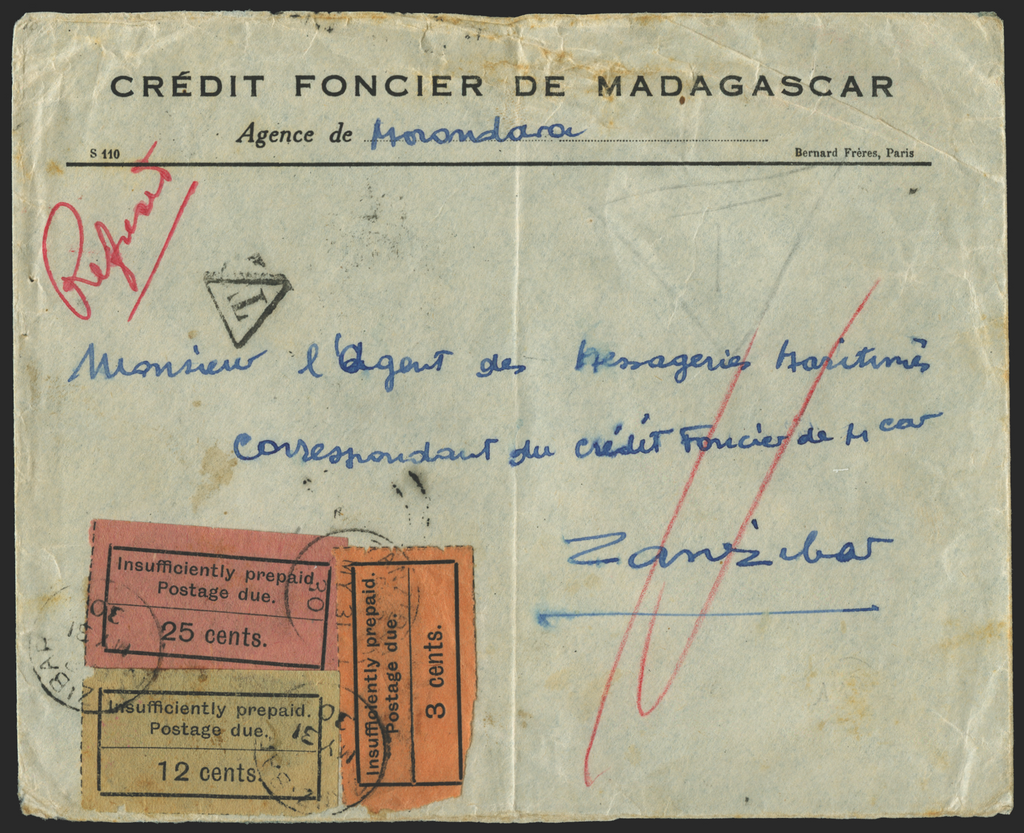 CRÉDIT FONCIER DE MADAGASCAR
Agence de Morondava
S 110
Bernard Frères, Paris
Refused
T
Monsieur l'Agent des Messageries Maritimes
Correspondant du Crédit Foncier de Mcar
Zanzibar
Insufficiently prepaid.
Postage due.
25 cents.
Insufficiently prepaid.
Postage due.
3 cents.
Insufficiently prepaid.
Postage due.
12 cents.
30
MY 31
30
MY
31
30
MY 31